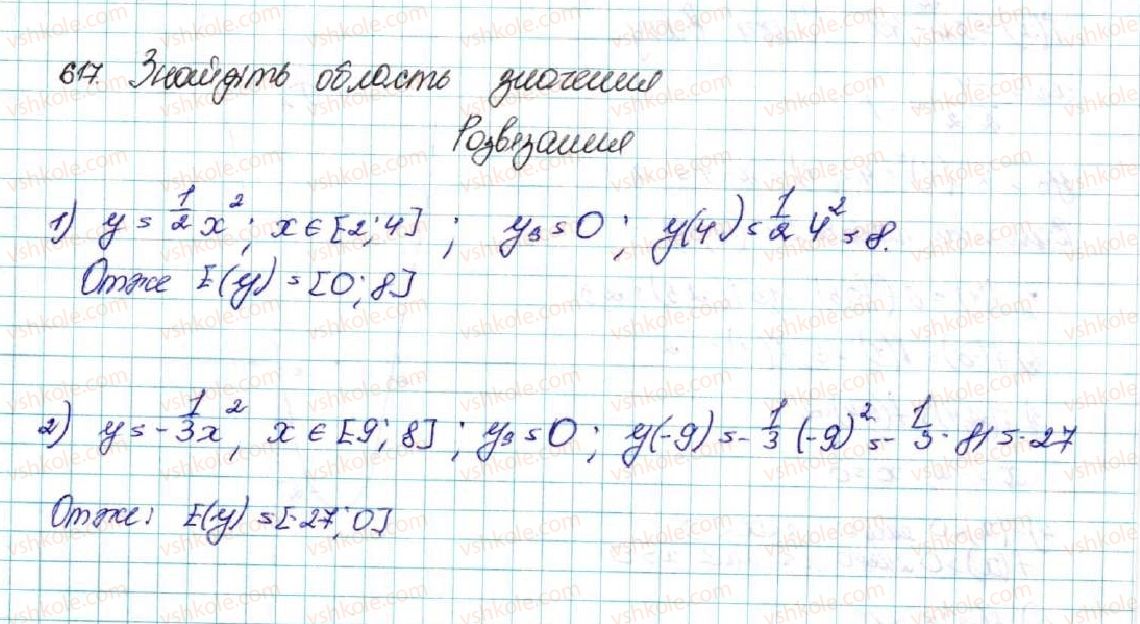 617. Знайдіть область значення
Розв'язання
1) y = 1/2 x², x ∈ [2; 4] ; yв = 0 ; y(4) = 1/2 4² = 8.
Отже E(y) = [0; 8]
2) y = -1/3x², x ∈ [9; 8] ; yв = 0 ; y(-9) = -1/3 (-9)² = -1/3 · 81 = -27
Отже: E(y) = [-27; 0]